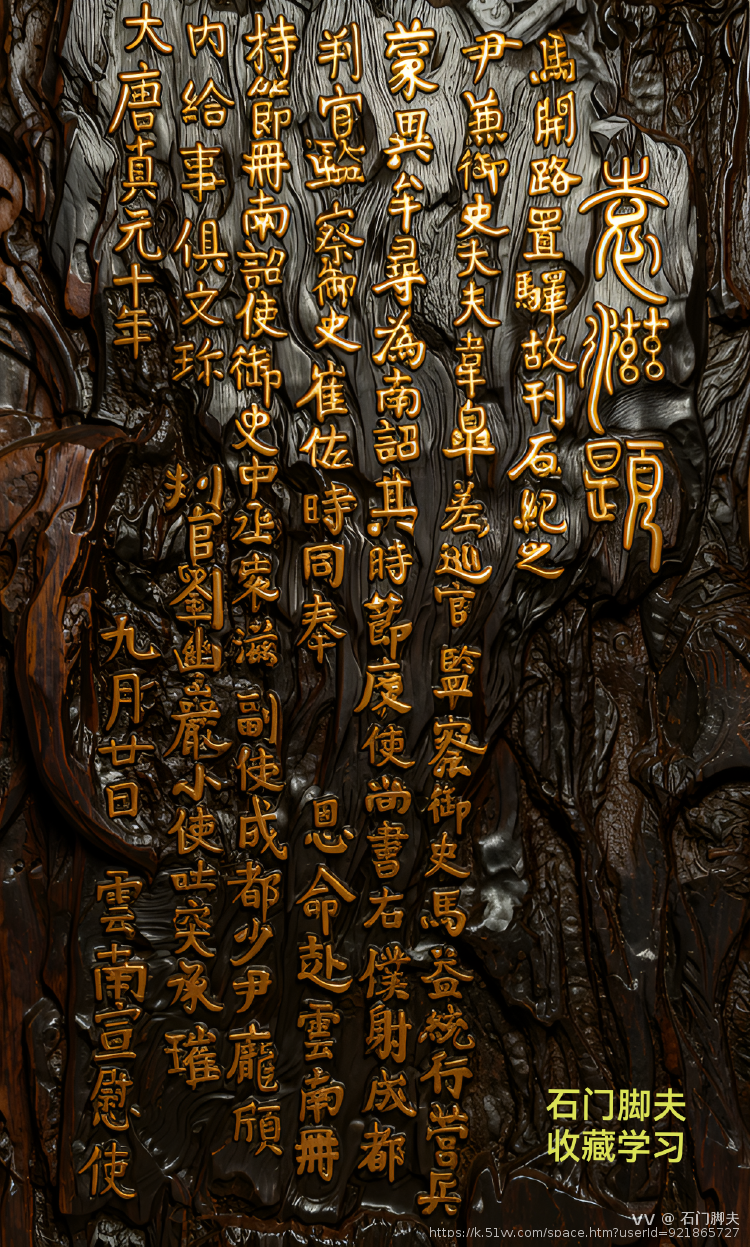 大唐貞元十年 九月廿日 雲南宣慰使
内給事俱文珎 判官劉幽巖小使吐突承璀
持節冊南詔使御史中丞袁滋 副使成都少尹龐頎
判官監察御史崔佐時同奉 恩命赴雲南冊
蒙異牟尋為南詔其時節度使尚書右僕射成都
尹兼御史大夫韋臯差巡官監察御史馬益統行營兵
馬開路置驛故刊石紀之
袁滋題
石门脚夫
收藏学习
VV @ 石门脚夫
https://k.51vv.com/space.htm?userId=921865727